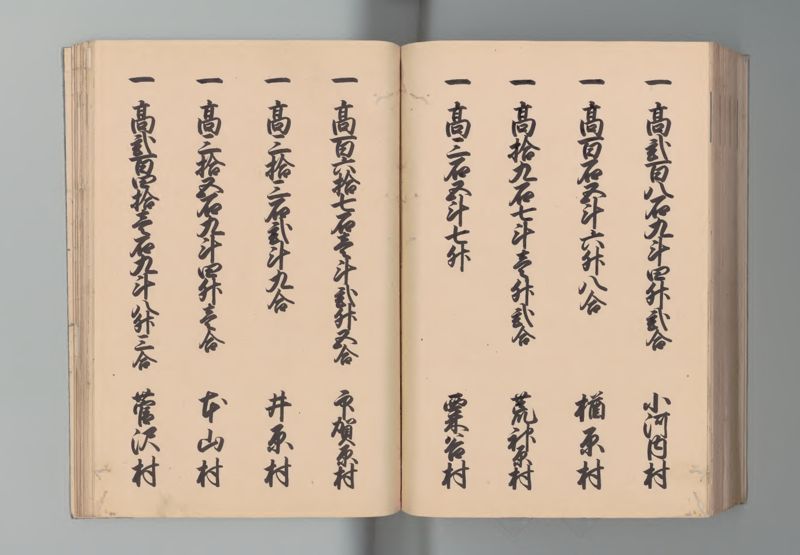 一 高弐百八石九斗四升弐合 小河内村
一 高百石五斗六升八合 楢原村
一 高拾九石七斗壱升弐合 荒神原村
一 高三石五斗七升 粟谷村
一 高百六拾七石壱斗弐升五合 市賀原村
一 高三拾三石弐斗九合 井原村
一 高三拾五石九斗四升壱合 本山村
一 高弐百四拾壱石九斗八升三合 菅沢村